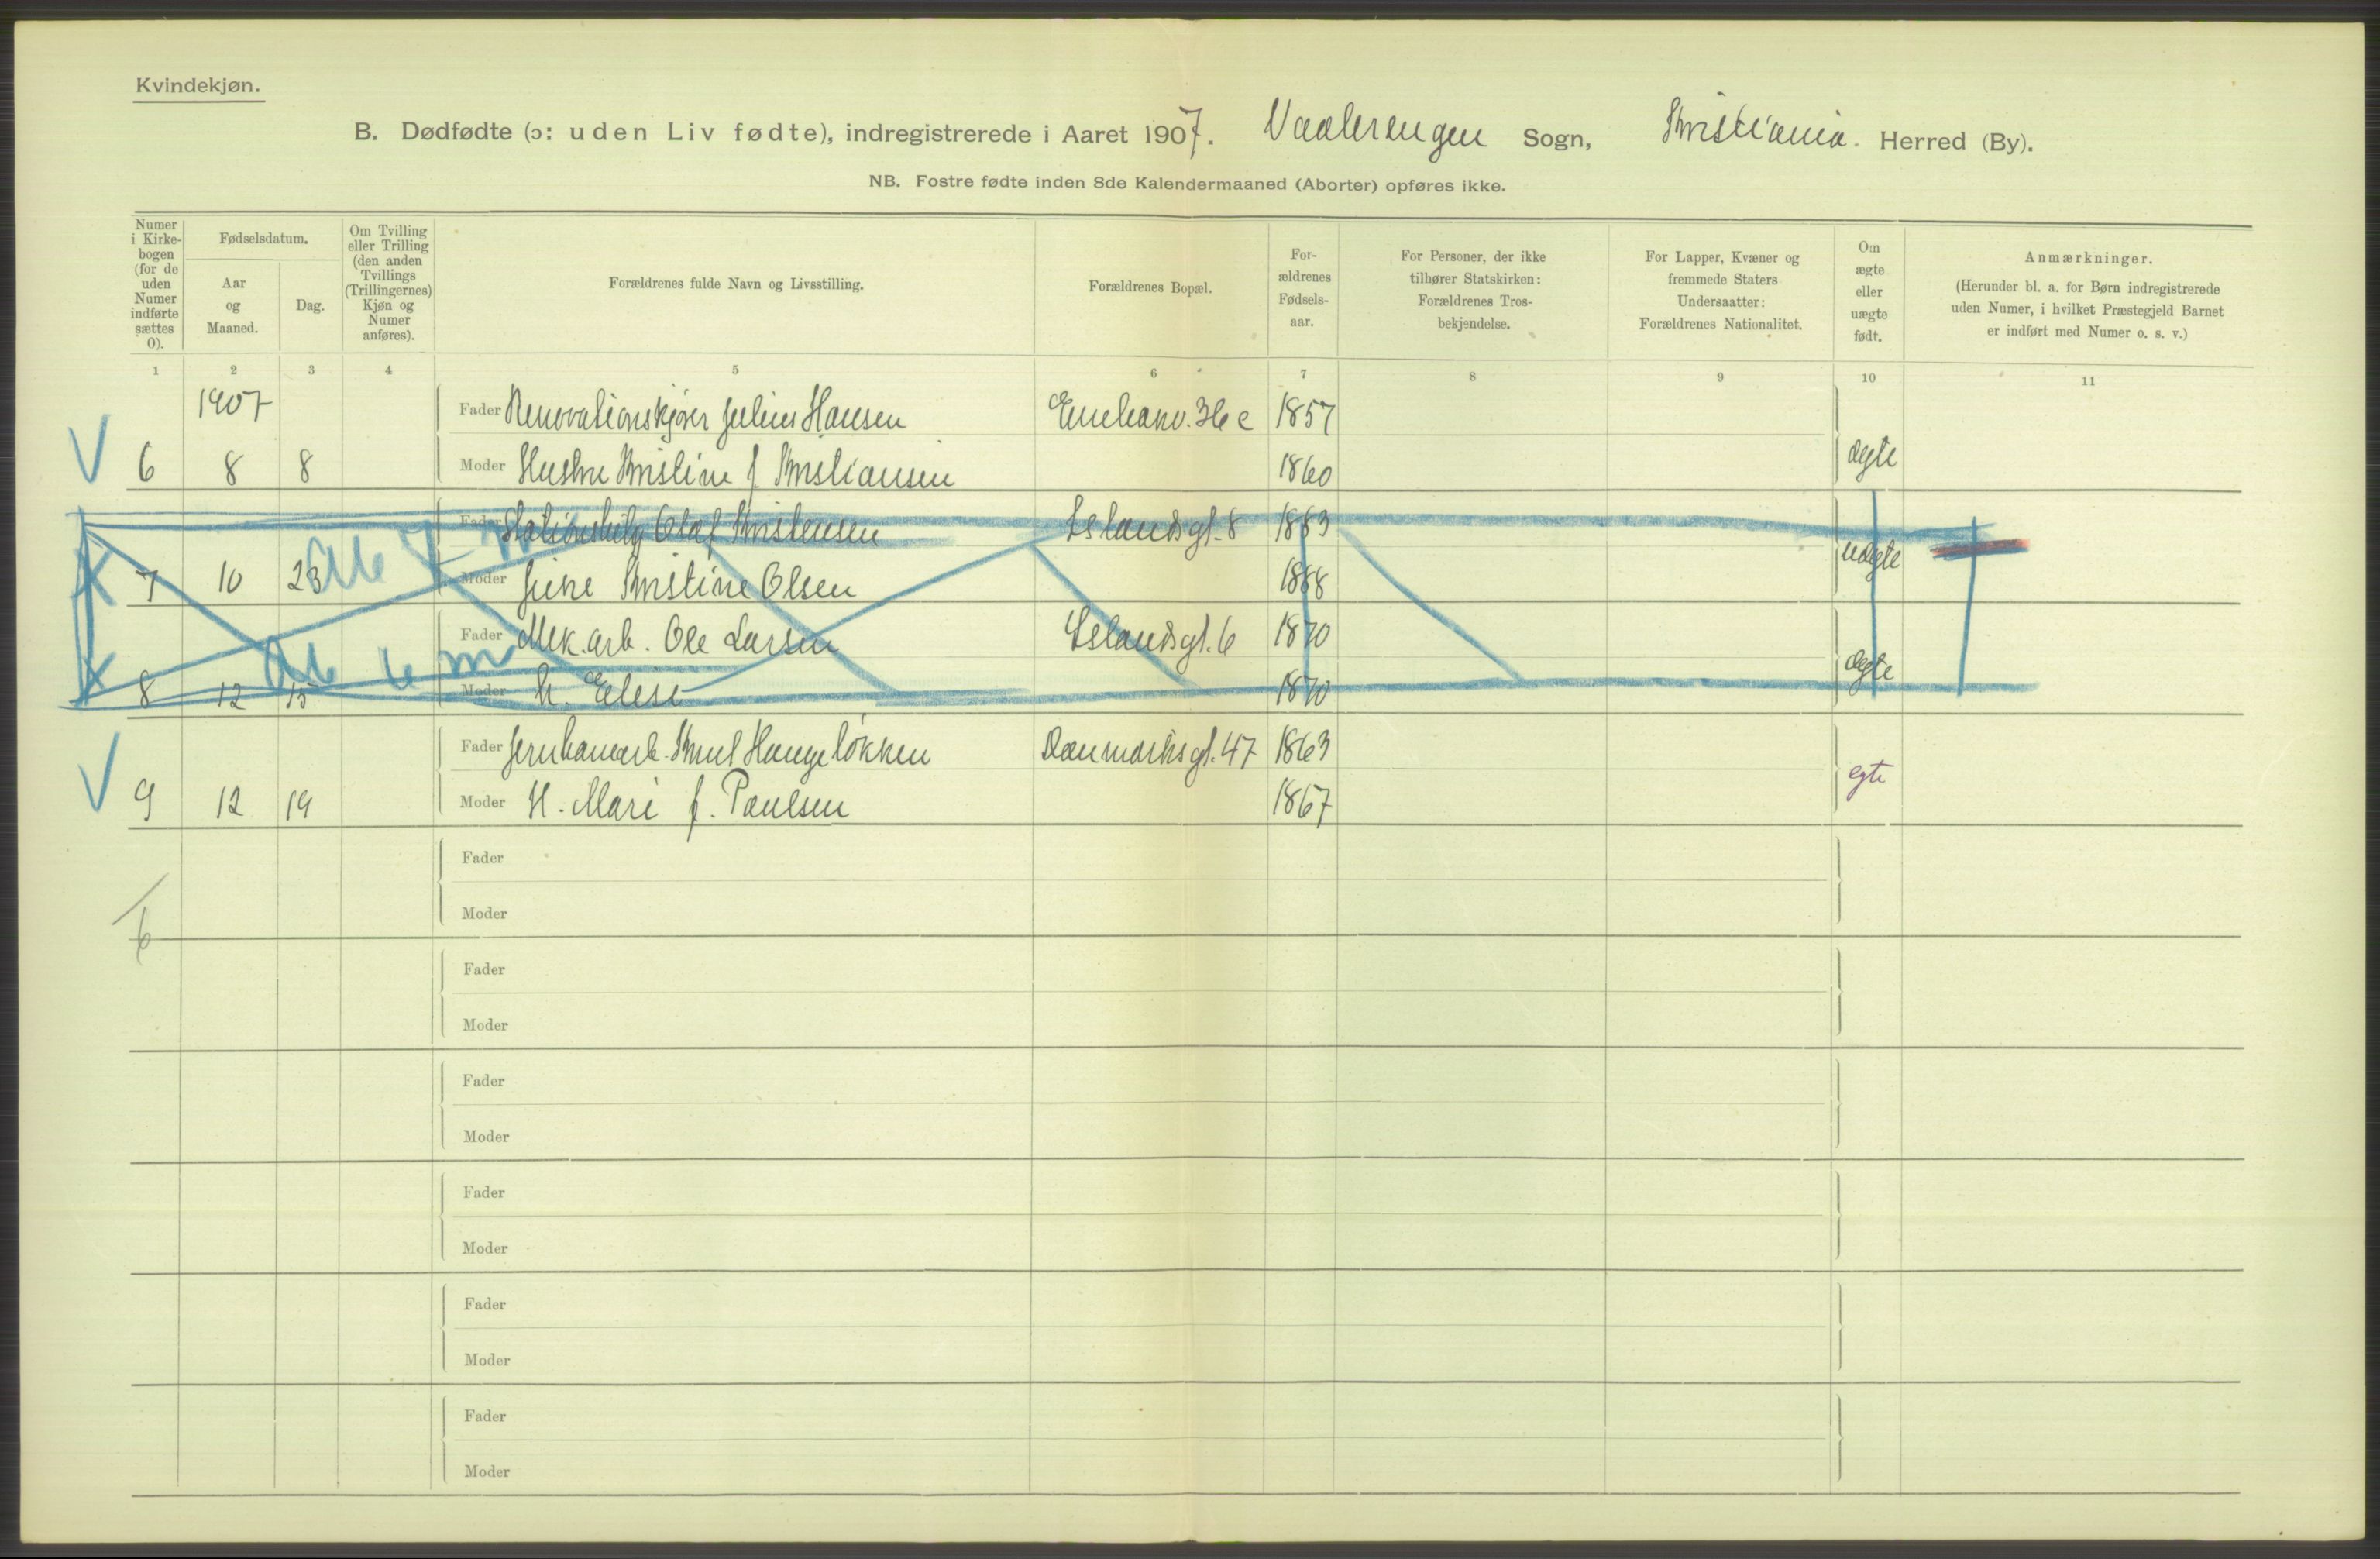 Kvindekjøn.
B. Dødfødte (ɔ: uden Liv fødte), indregistrerede i Aaret 1907. Vaalerengen Sogn, Kristiania. Herred (By).
NB. Fostre fødte inden 8de Kalendermaaned (Aborter) opføres ikke.
Numer i Kirke-bogen (for de uden Numer indførte sættes 0).
Fødselsdatum.
Aar og Maaned.
Dag.
Om Tvilling eller Trilling (den anden Tvillings (Trillingernes) Kjøn og Numer anføres).
Forældrenes fulde Navn og Livsstilling.
Forældrenes Bopæl.
For-ældrenes Fødsels-aar.
For Personer, der ikke tilhører Statskirken: Forældrenes Tros-bekjendelse.
For Lapper, Kvæner og fremmede Staters Undersaatter: Forældrenes Nationalitet.
Om ægte eller uægte født.
Anmærkninger.
(Herunder bl. a. for Børn indregistrerede uden Numer, i hvilket Præstegjeld Barnet er indført med Numer o. s. v.)
1 2 3 4 5 6 7 8 9 10 11
1907 Fader Renovationskjører Julius Hansen 36 c 1857
V 6 8 8 Moder Hustru Kristine f Kristiansen 1860 ægte
Fader Olaf Kristensen Islandsgt. 8 1883
7 10 23 Moder Kristine Olsen 1888 uægte
Fader Mek. arb. Ole Larsen Islandsgt. 6 1870
8 12 15 Moder h. Elise 1870 ægte
Fader Jernbanearb. Knut Haugeløkken Danmarksgt. 47 1863
V 9 12 19 Moder H. Mari f. Paulsen 1867 egte
Fader
Moder
6
Fader
Moder
Fader
Moder
Fader
Moder
Fader
Moder
Fader
Moder